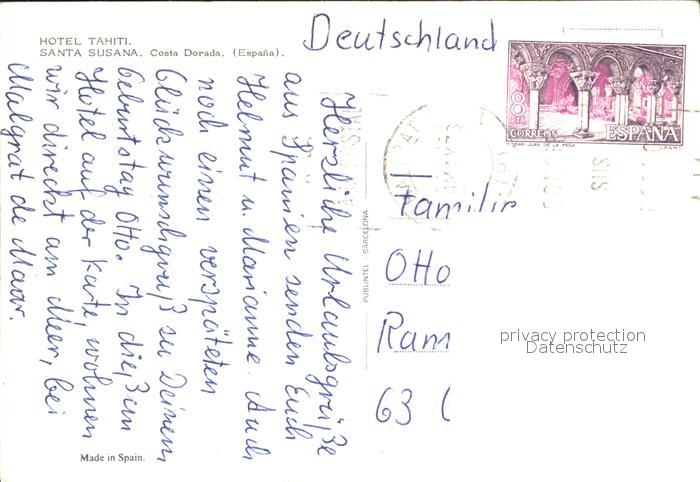 HOTEL TAHITI.
SANTA SUSANA. Costa Dorada. (España).
Deutschland
8
PTA
CORREOS
ESPAÑA
Herzliche Urlaubsgrüße
aus Spanien senden Euch
Helmut u. Marianne. Auch
noch einen verspäteten
Glückwunschgruß zu Deinem
Geburtstag Otto. In dießem
Hotel auf der Karte, wohnen
wir direkt am Meer, bei
Malgrat de Maar.
PUBLINTEL - BARCELONA
Familie
Otto
Ram
63
privacy protection
Datenschutz
Made in Spain.